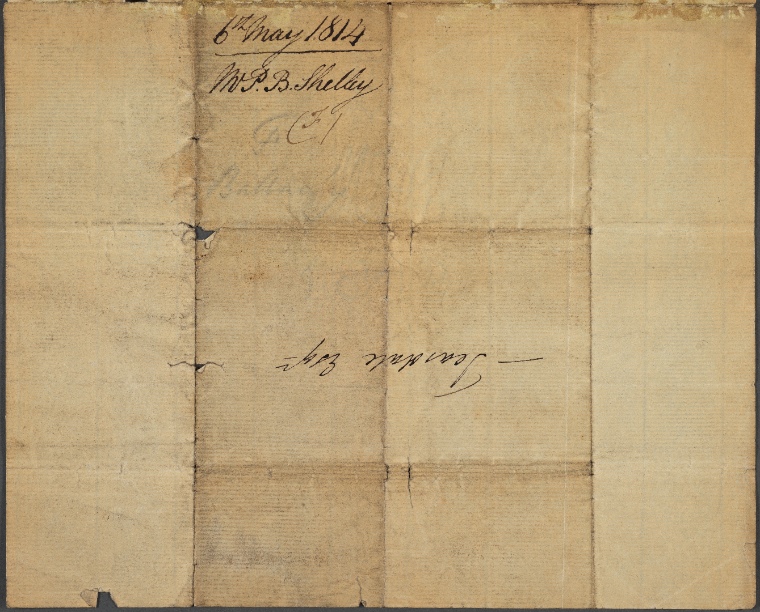 6th May 1814
Mr P. B. Shelley
(F)
— Teasdale Esqr